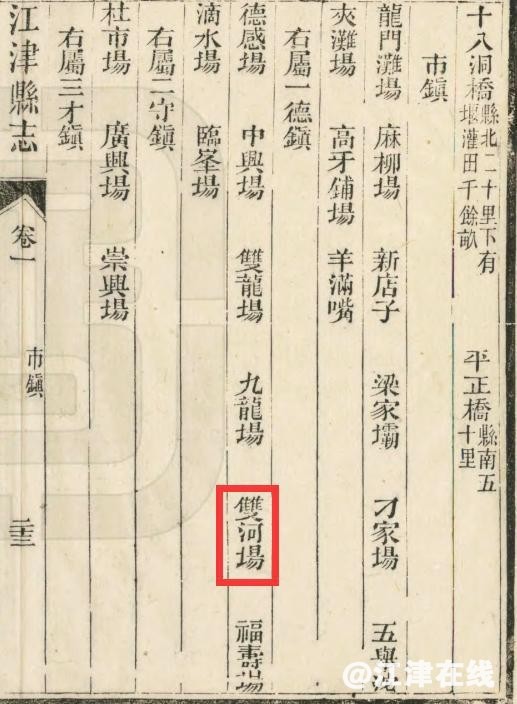 十八洞橋縣北二十里下有堰灌田千餘畝 平正橋縣南五十里
市鎮
龍門灘場 麻柳場 新店子 梁家壩 刁家場 五舉沱
夾灘場 高牙鋪場 羊滿嘴
右屬一德鎮
德感場 中興場 雙龍場 九龍場 雙河場 福壽場
滴水場 臨峯場
右屬二守鎮
杜市場 廣興場 崇興場
右屬三才鎮
江津縣志 卷一 市鎮 二十三
@江津在线